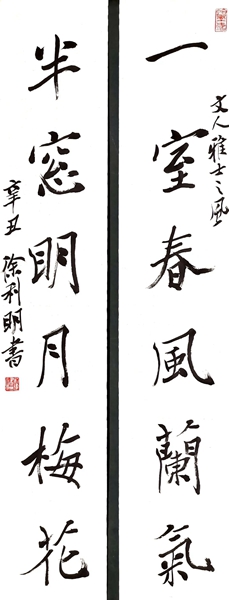 一室春風蘭氣
文人雅士之風
半窓明月梅花
辛丑 徐利明書